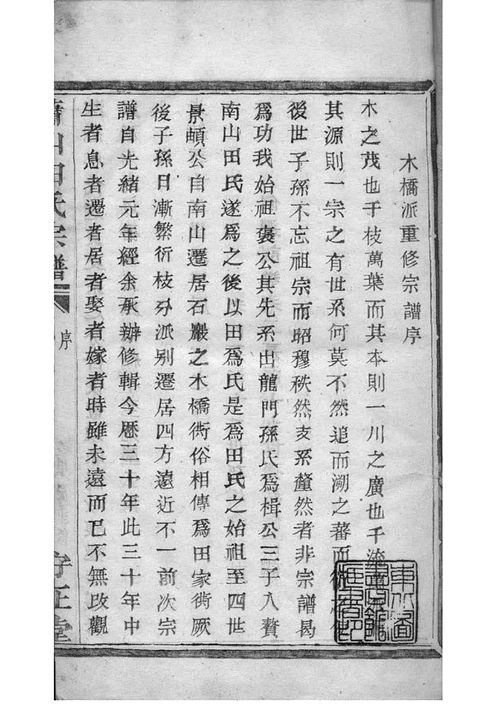 木橋派重修宗譜序
木之茂也千枝萬葉而其本則一川之廣也千流
其源則一宗之有世系何莫不然追而溯之蕃而
後世子孫不忘祖宗而昭穆秩然支系釐然者非宗譜曷
爲功我始祖褒公其先系出龍門孫氏爲楫公三子入贅
南山田氏遂爲之後以田爲氏是爲田氏之始祖至四世
景頔公自南山遷居石巖之木橋衖俗相傳爲田家衖厥
後子孫日漸繁衍枝分派別遷居四方遠近不一前次宗
譜自光緒元年經余承辦修輯今歷三十年此三十年中
生者息者遷者居者娶者嫁者時雖未遠而已不無改觀
蕭山田氏宗譜
序
守正堂